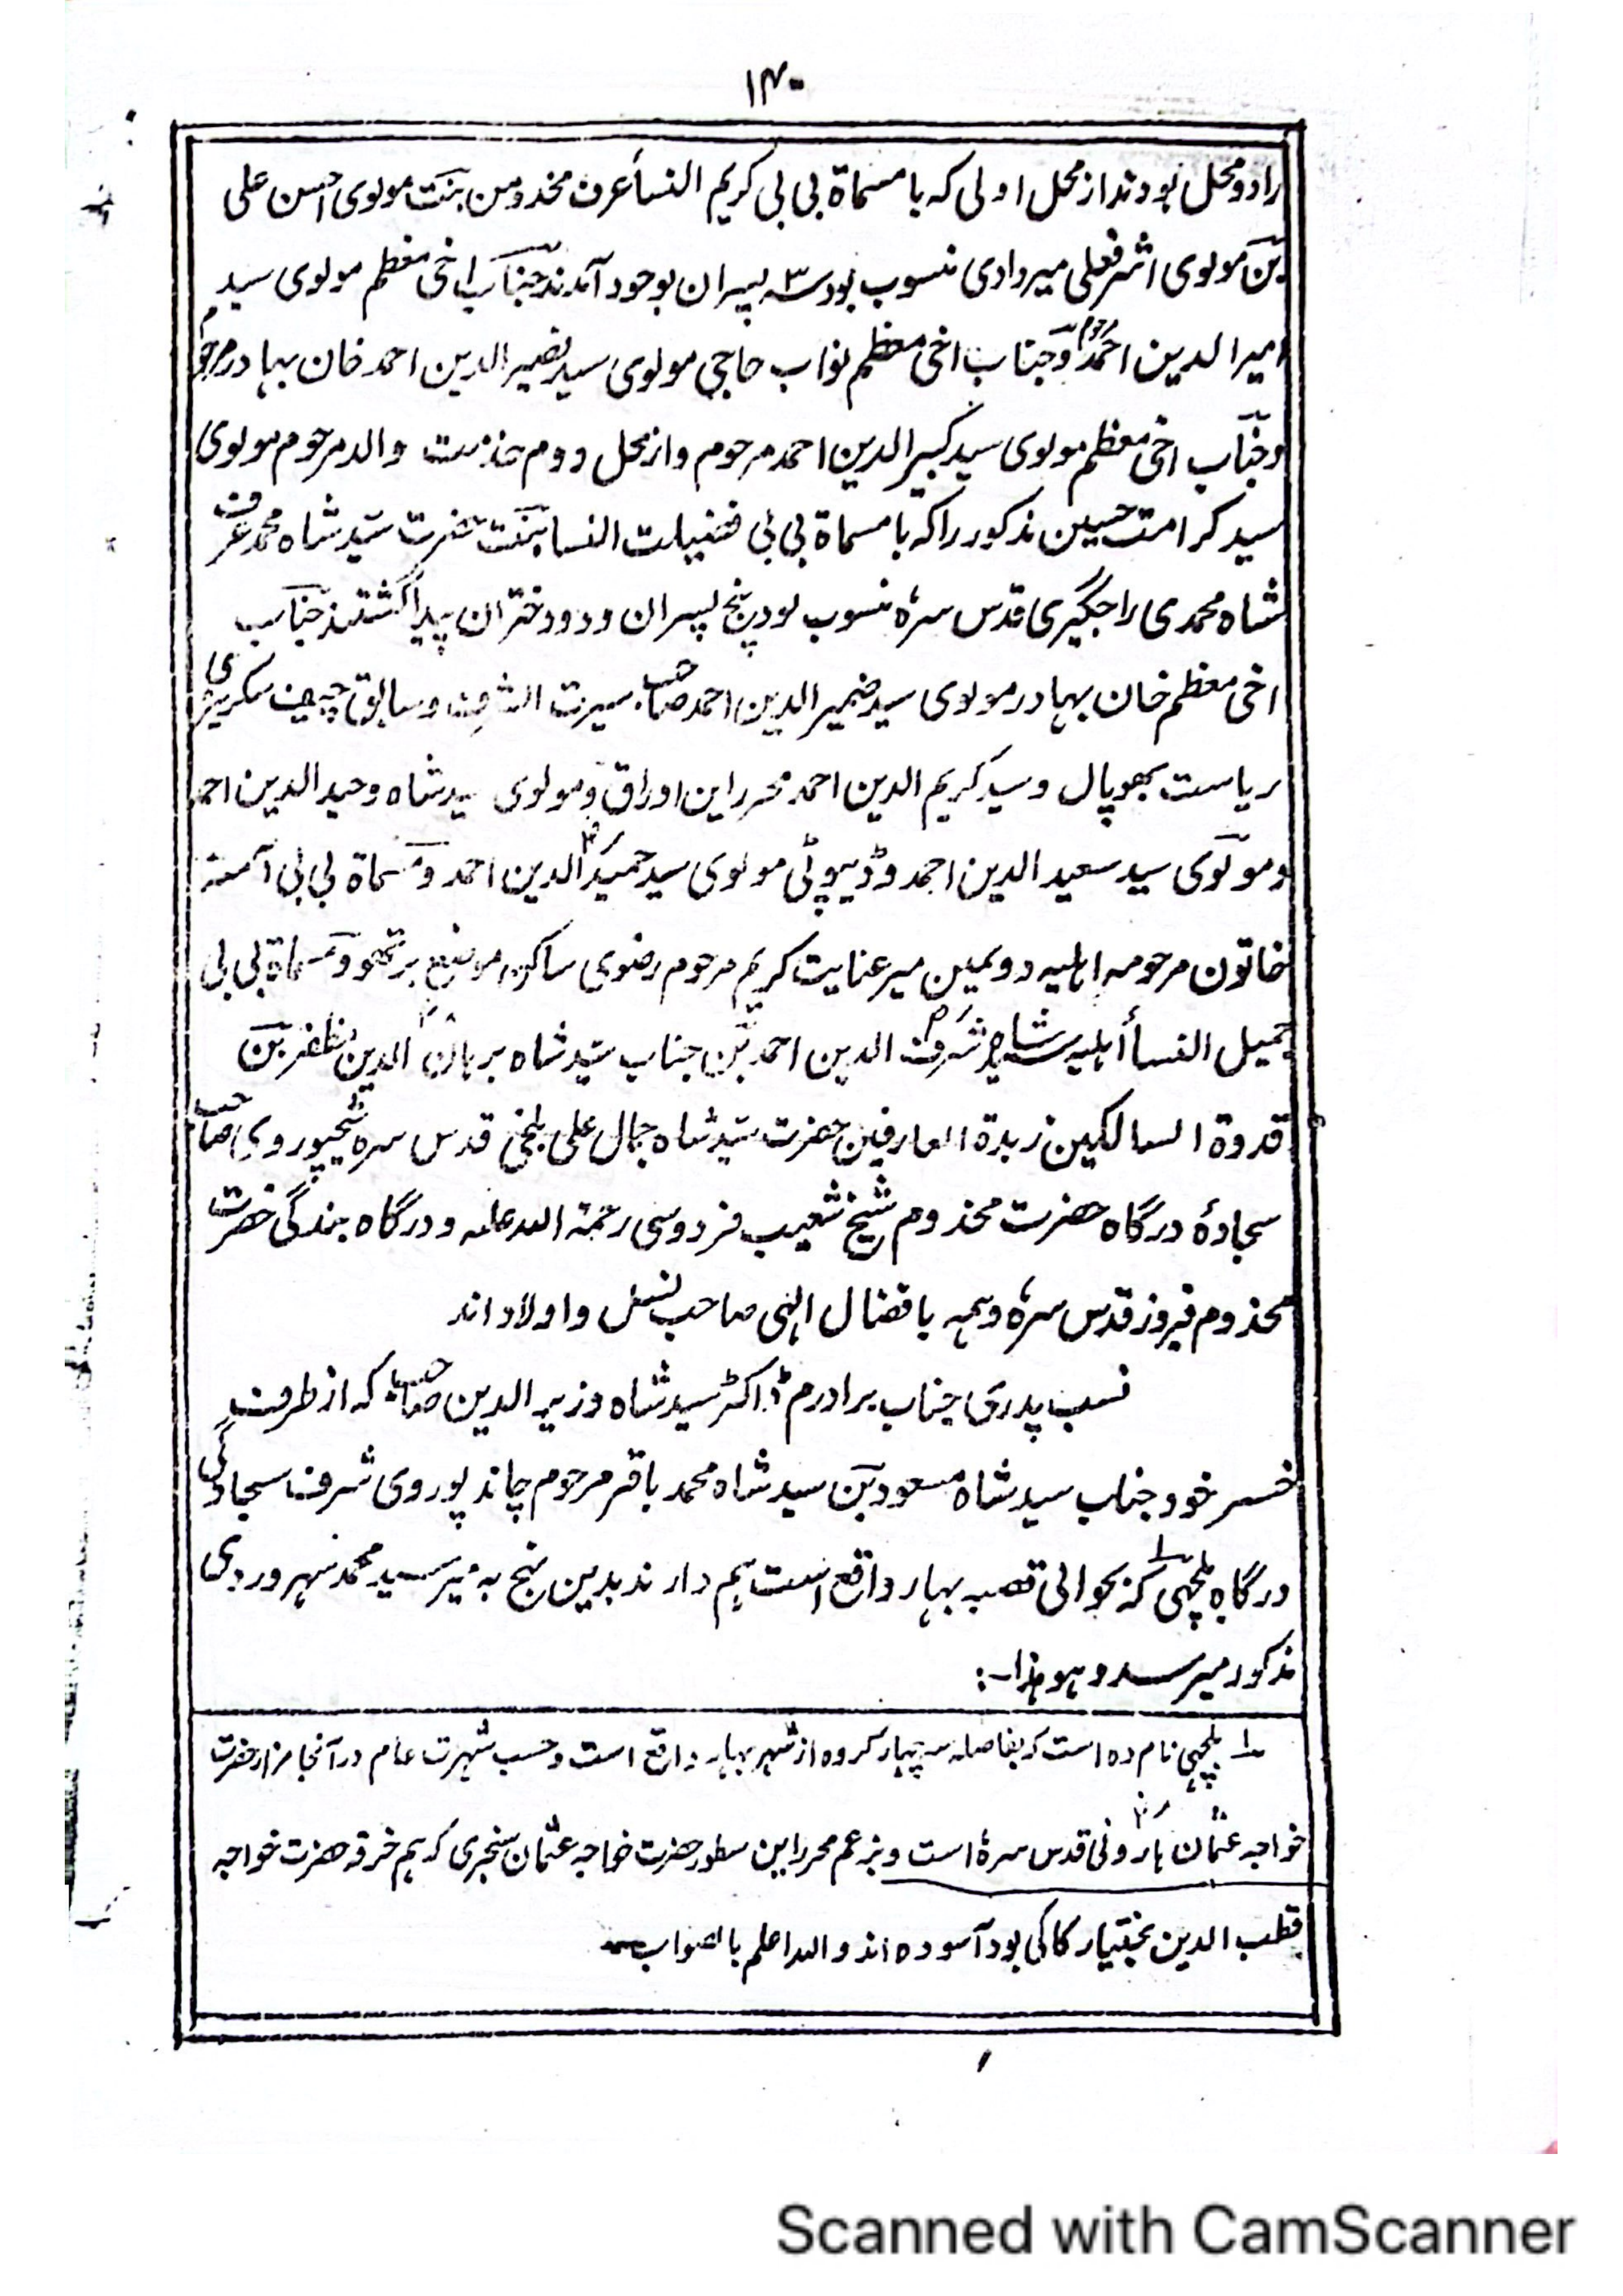 ۱۴۰
را دو محل بودند از محل اولی که با مسماة بی بی کریم النسأ عرف مخدومن بنت مولوی احسن علی
بن مولوی اشرفعلی میردادی منسوب بود سه ۳ پسران بوجود آمدند جناب اخی معظم مولوی سید
امیر الدین احمد مرحوم و جناب اخی معظم نواب حاجی مولوی سید نصیر الدین احمد خان بهادر مرحوم
و جناب اخی معظم مولوی سید کبیر الدین احمد مرحوم و از محل دوم حضرت والد مرحوم مولوی
سید کرامت حسین مذکور را که با مسماة بی بی فضیلت النسا بنت حضرت سید شاه محمد عرف
شاه محمدی راجگیری قدس سرهٗ منسوب بود پنج پسران و دو دختران پیدا گشتند جناب
اخی معظم خان بهادر مولوی سید ضمیر الدین احمد صاحب سیرت الشرف و سابق چیف سکریٹری
ریاست بھوپال و سید کریم الدین احمد محرر این اوراق و مولوی سید شاه وحید الدین احمد
و مولوی سید سعید الدین احمد و ڈیپوٹی مولوی سید حمید الدین احمد و مسماة بی بی آمنه
خاتون مرحومه اهلیه دویمین میر عنایت کریم مرحوم رضوی ساکن موضع برتھو و مسماة بی بی
جمیل النسأ اهلیه شاه شرف الدین احمد بن جناب سید شاه برهان الدین مظفر بن
قدوة السالکین زبدة العارفین حضرت سید شاه جمال علی بلخی قدس سره شیخپوروی صاحب
سجادهٔ درگاه حضرت مخدوم شیخ شعیب فردوسی رحمة الله علیه و درگاه بندگی حضرت
مخدوم فیروز قدس سرهٗ و همه بافضال الهی صاحب نسل و اولاد اند
نسب پدری جناب برادرم ڈاکٹر سید شاه وزیر الدین صاحب که از طرف
خسر خود جناب سید شاه مسعود بن سید شاه محمد باقر مرحوم چاندپوروی شرف سجادگی
درگاه بلچهی ۱؎ که بحوالی قصبه بهار واقع است هم دارند بدین نهج به میر سید محمد سهروردی
مذکور میرسد و هو هذا -:
۱؎ بلچهی نام ده است که بفاصله سه چهار کروه از شهر بهار واقع است و حسب شهرت عام در آنجا مزار حضرت
خواجه عثمان هارونی قدس سرهٗ است و بزعم محرر این سطور حضرت خواجه عثمان سنجری که هم خرقه حضرت خواجه
قطب الدین بختیار کاکی بود آسوده اند والله اعلم بالصواب
Scanned with CamScanner